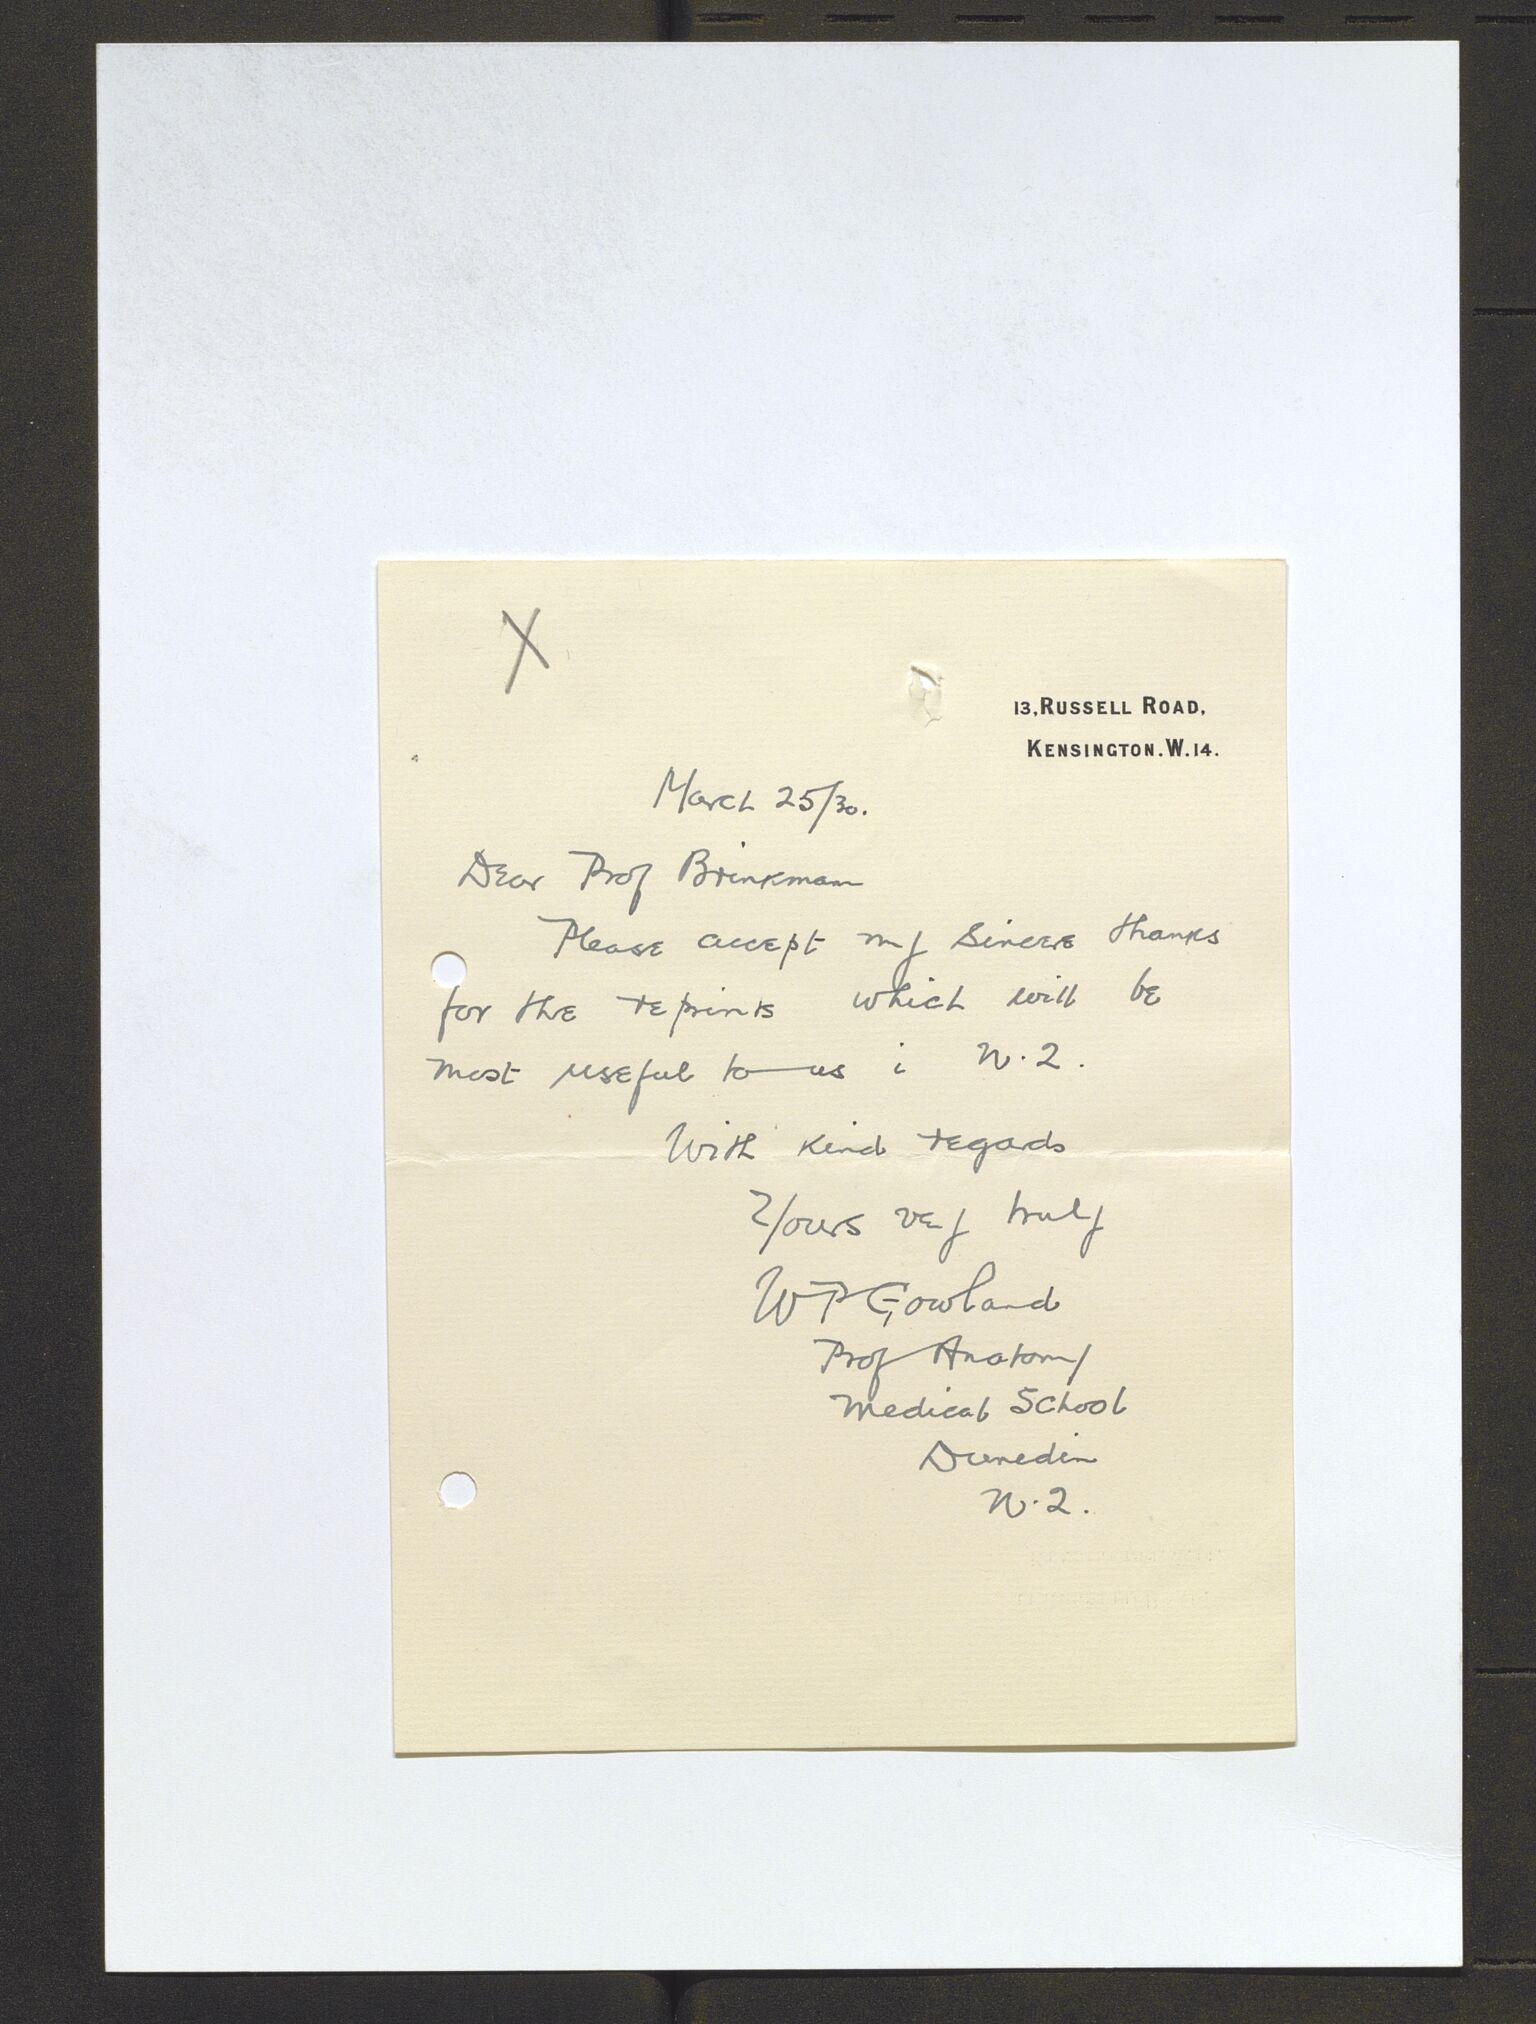 X
13, RUSSELL ROAD,
KENSINGTON. W. 14.
March 25/30.
Dear Prof Brinkmann
Please accept my sincere thanks
for the reprints which will be
most useful to us i N.Z.
With kind regards
Yours very truly
WP Gowland
Prof Anatomy
Medical School
Dunedin
N.Z.